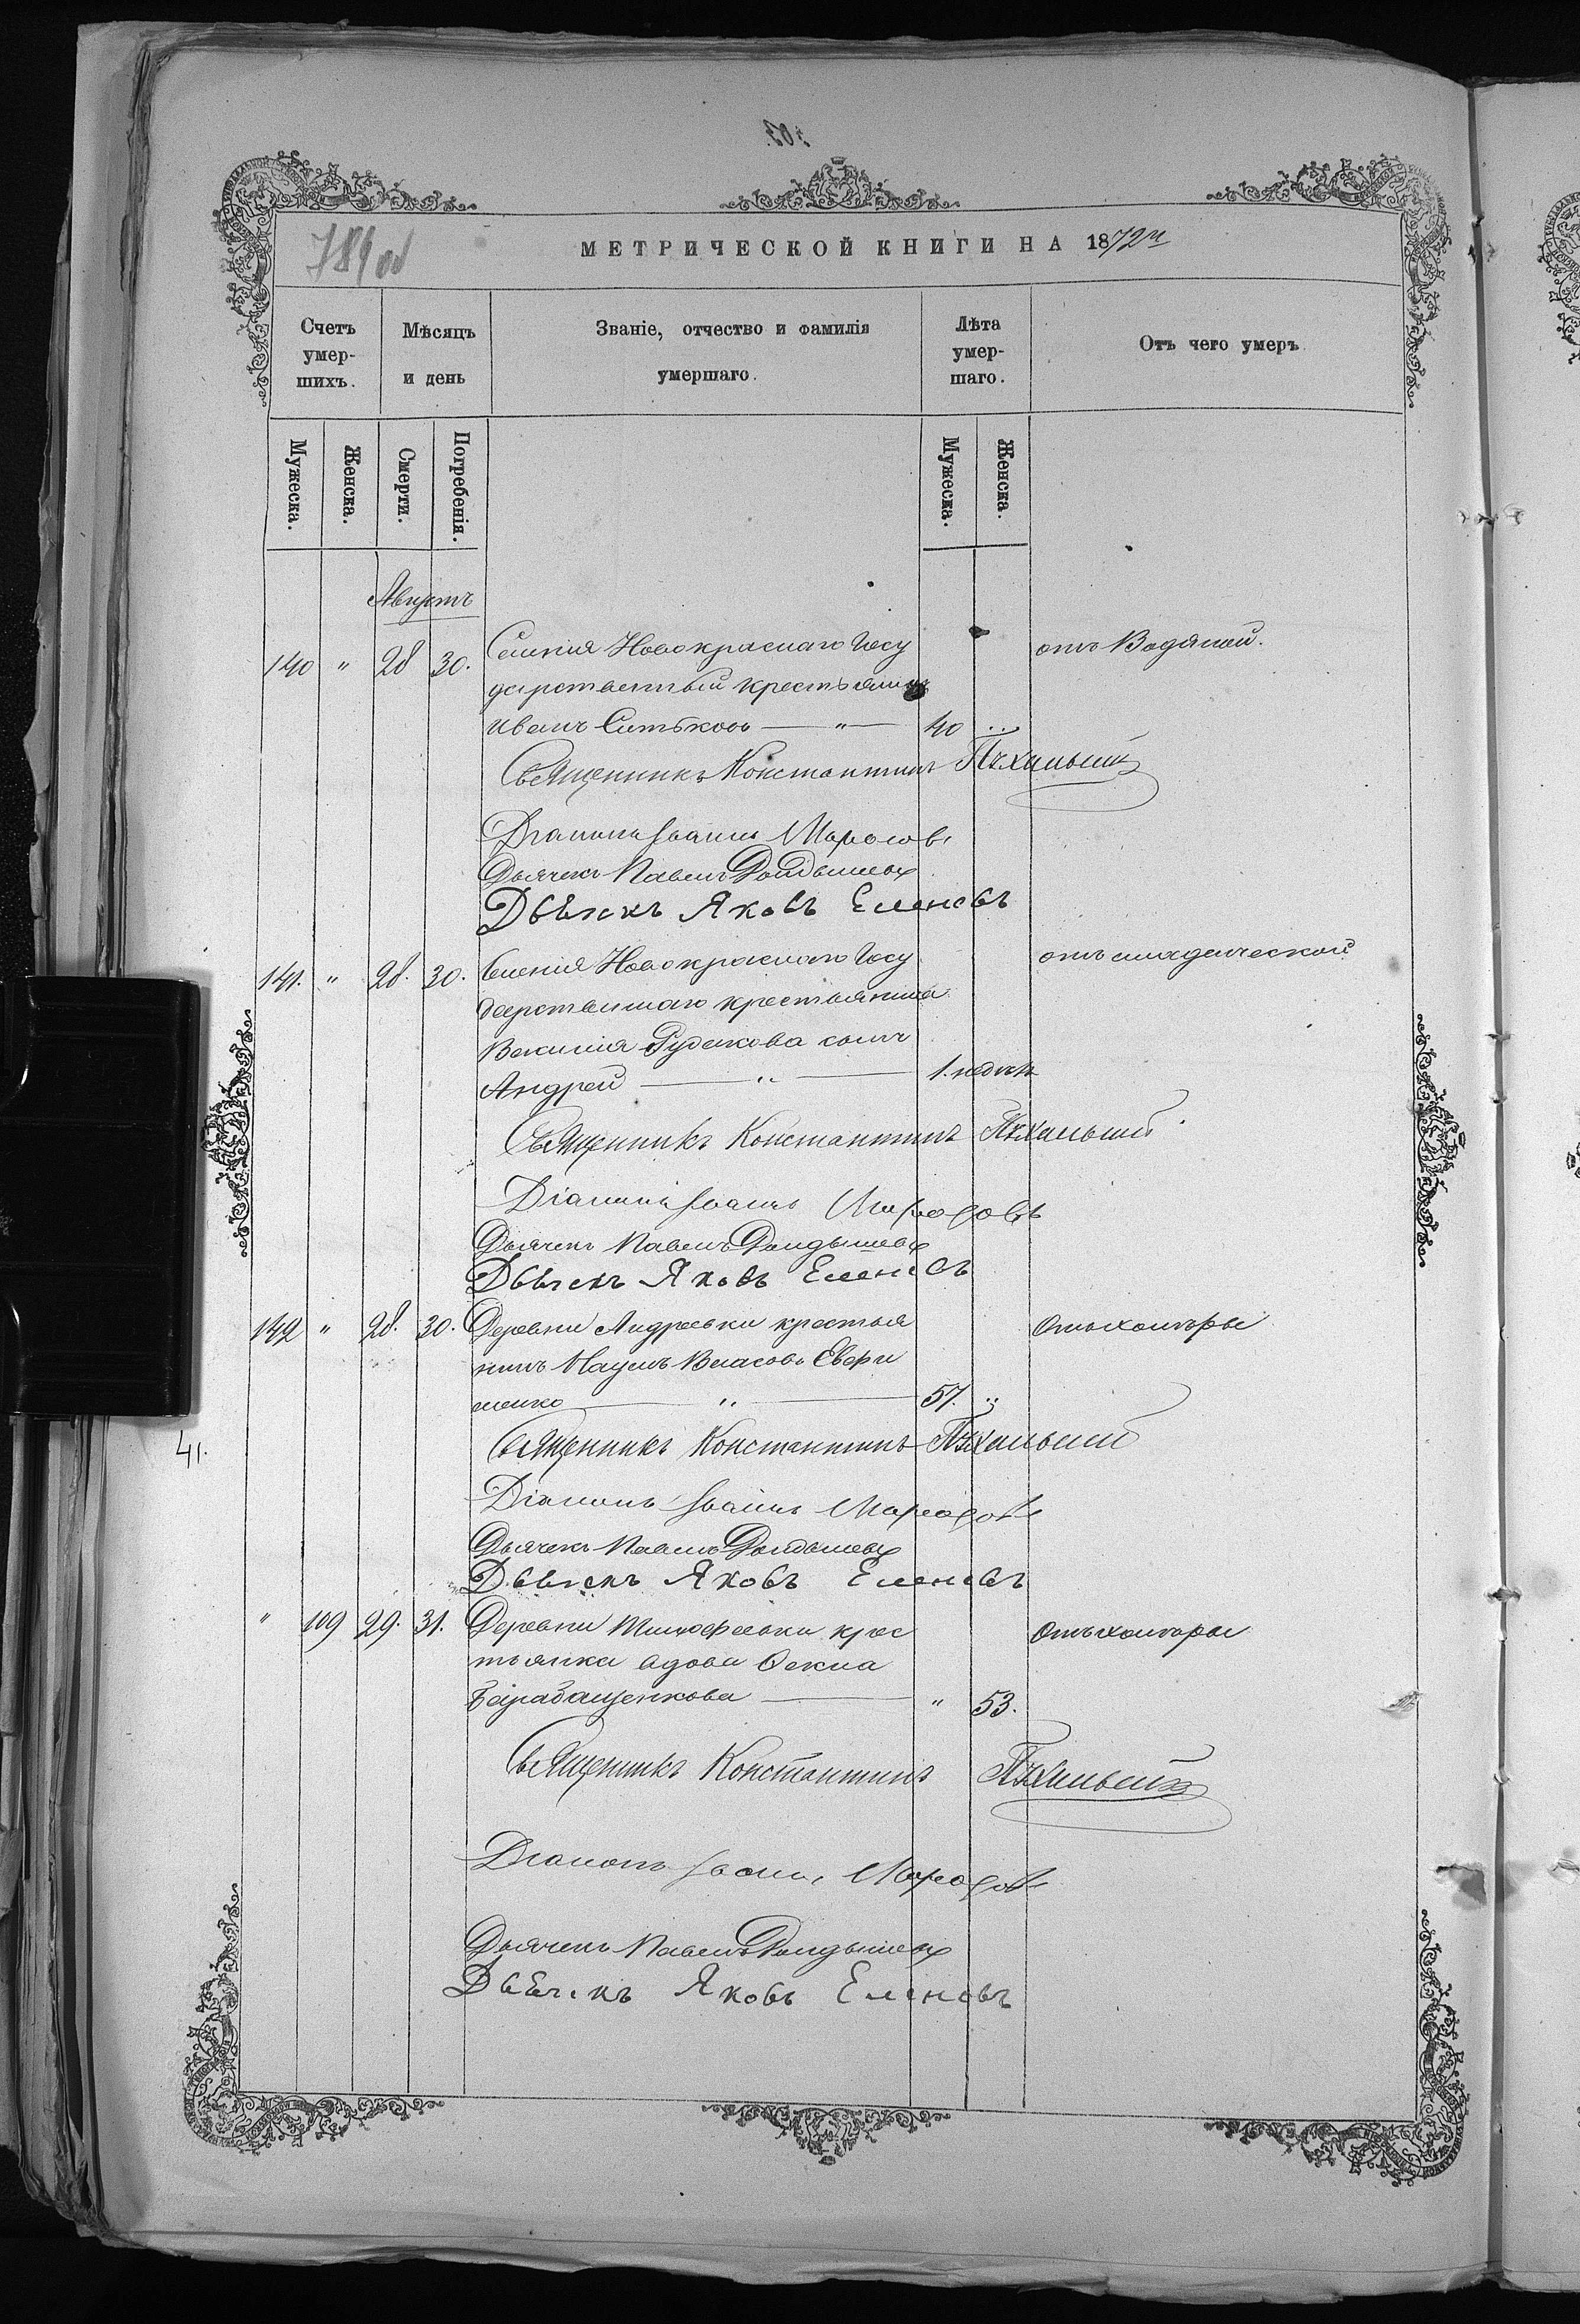 784 об
МЕТРИЧЕСКОЙ КНИГИ НА 1872 г
Счетъ умер-шихъ.
Мѣсяцъ и день
Званіе, отчество и фамилія умершаго.
Лѣта умер-шаго.
Отъ чего умеръ
Мужеска.
Женска.
Смерти.
Погребенія.
Мужеска.
Женска.
Августъ
140 " 28 30. Селенія Новокраснаго Госу
отъ Водяной.
дарственный крестьянинъ
Иванъ Ситьковъ — " — 40 ...
Священникъ Константинъ
Діаконъ Іоаннъ Морозовъ
Дьячекъ Павелъ
Дьячекъ Яковъ Еленевъ
141. " 28. 30. Селенія Новокраснаго Госу
отъ младенческой
дарственнаго крестьянина
Рудакова сынъ
Андрей — " — 1. недѣля
Священникъ Константинъ
Діаконъ Іоаннъ Морозовъ
Дьячекъ Павелъ
Дьячекъ Яковъ Еленевъ
142 " 28. 30. Деревни Андреевки крестья
Отъ холеры
нинъ Наумъ Власовъ Ефри
менко — " — 57. "
41.
Священникъ Константинъ
Діаконъ Іоаннъ Морозовъ
Дьячекъ Павелъ
Дьячекъ Яковъ Еленевъ
" 109 29. 31. Деревни Тимофеевки крес
Отъ холеры
тьянка вдова Фекла
Барабащенкова — " 53.
Священникъ Константинъ
Діаконъ Іоаннъ Морозовъ
Дьячекъ Павелъ
Дьячекъ Яковъ Еленевъ